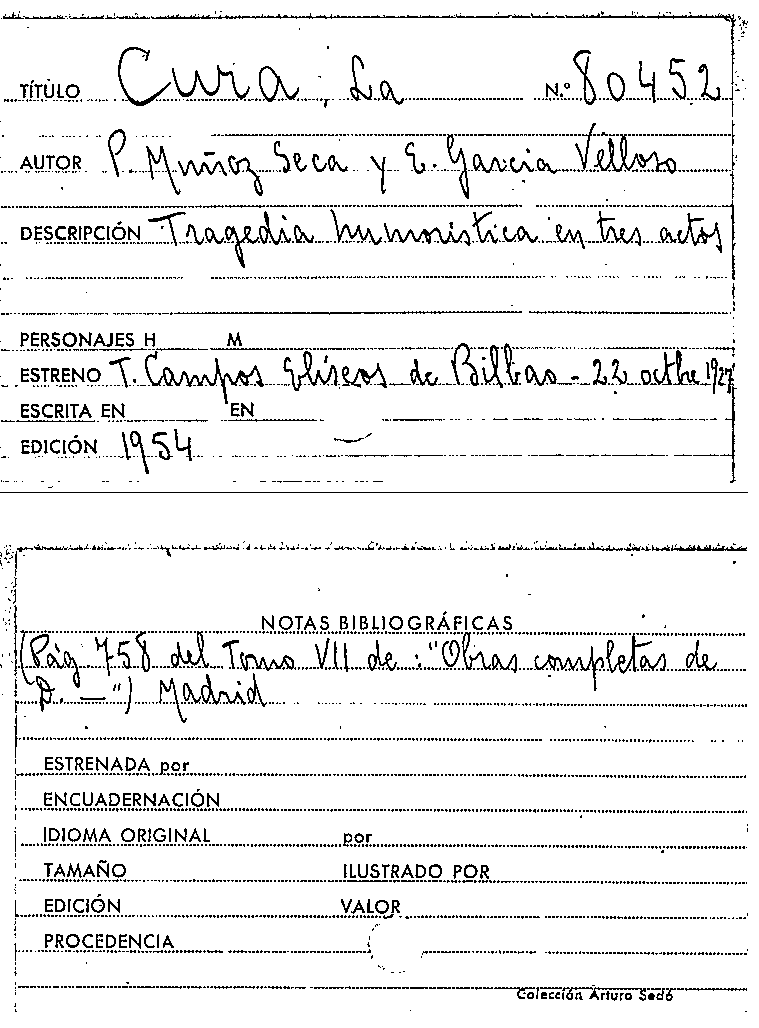 TÍTULO Cura, La N.º 80452
AUTOR P. Muñoz Seca y E. Garcia Velloso
DESCRIPCIÓN Tragedia humoristica en tres actos
PERSONAJES H M
ESTRENO T. Campos Elíseos de Bilbao - 22 octbre 1927
ESCRITA EN EN
EDICIÓN 1954
NOTAS BIBLIOGRÁFICAS
(Pág 758 del Tomo VII de: "Obras completas de
D. —") Madrid
ESTRENADA por
ENCUADERNACIÓN
IDIOMA ORIGINAL por
TAMAÑO ILUSTRADO POR
EDICIÓN VALOR
PROCEDENCIA
Colección Arturo Sedó